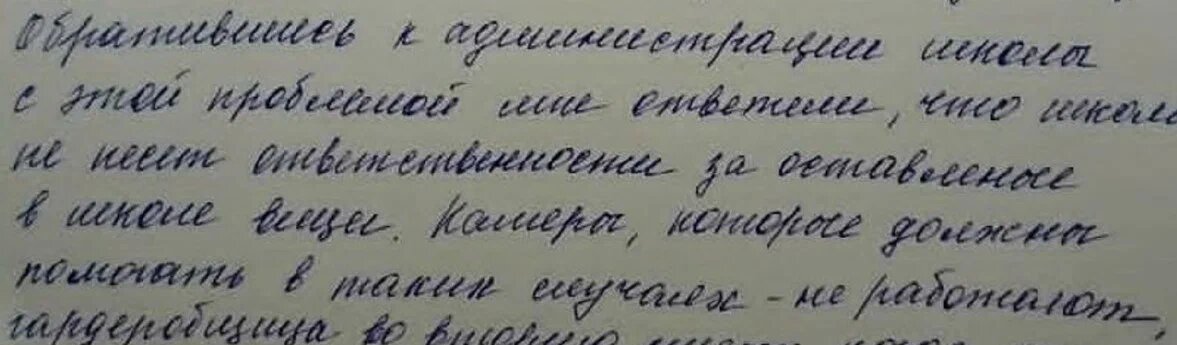 Обратившись к администрации школы
с этой проблемой мне ответили, что школа
не несет ответственности за оставленые
в школе вещи. Камеры, которые должны
помогать в таких случаях - не работают,
гардеробщица во вторую